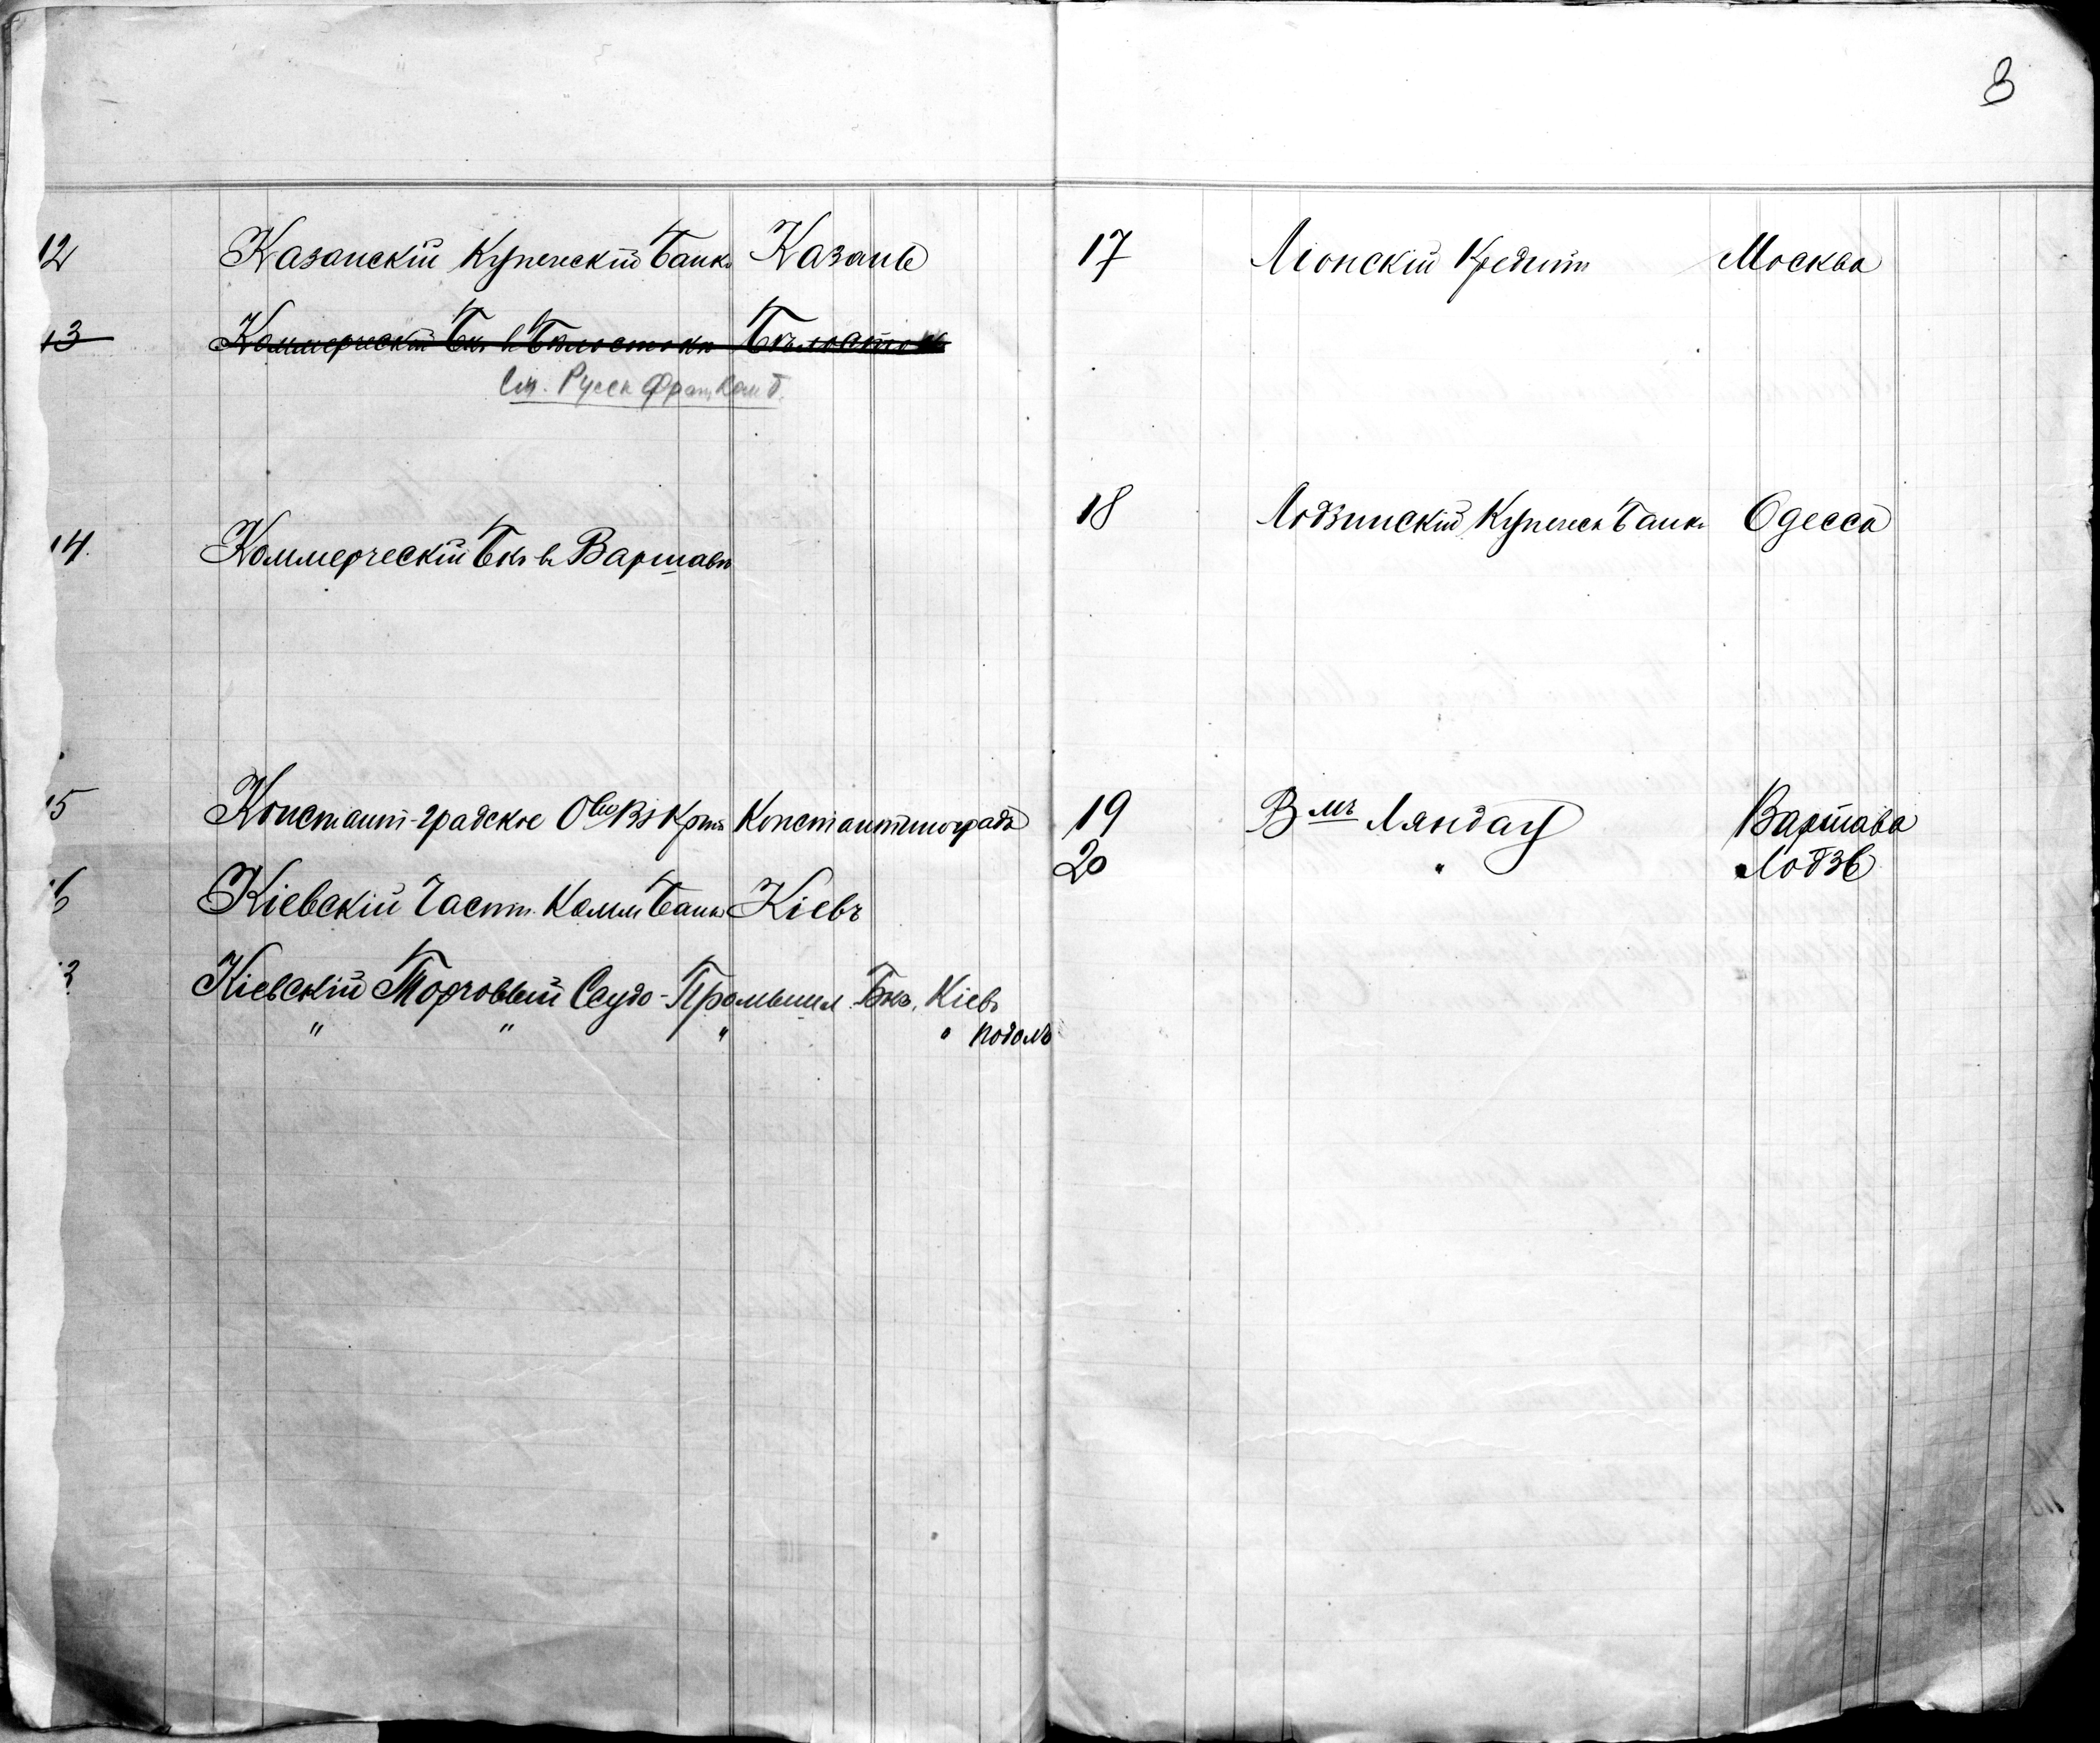 3
12 Казанскій Купеческій Банкъ Казань
13 Коммерческій Бкъ въ Бѣлостокѣ Бѣлостокъ
См. Русск Франц Ком Б.
14. Коммерческій Бкъ въ Варшавѣ
15 Константи-градское О-во Вз Крта Константиноградъ
16 Кіевскій Частн. Комм Банкъ Кіевъ
Кіевскій Торговый Ссудо-Промышл Бкъ, Кіевъ
" " " " Подолъ
17 Ліонскій Кредитъ Москва
18 Лодзинскій Купеческ Банкъ Одесса
19 Вмъ Ляндау Варшава
20 " Лодзь